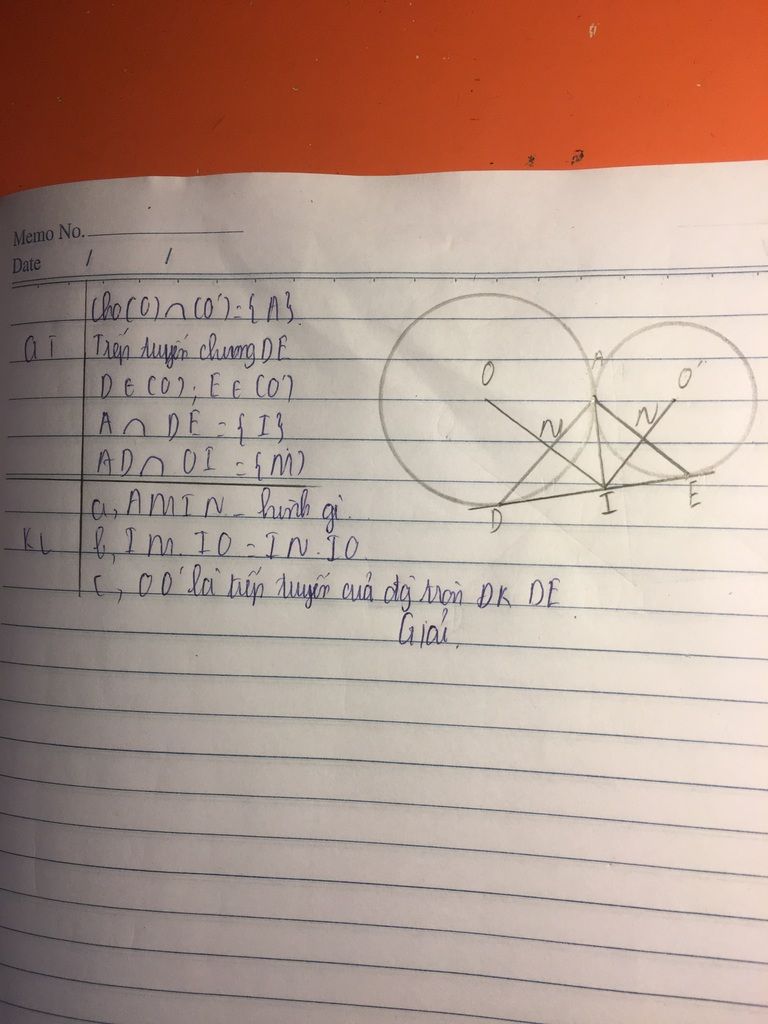 Memo No.
Date / /
Cho (O) ∩ (O') = {A}
GT Tiếp tuyến chung DE
D ∈ (O); E ∈ (O')
A ∩ DE = {I}
AD ∩ OI = {M}
a, AMIN - hình gì
KL b, IM. IO = IN. IO
c, OO' là tiếp tuyến của đg tròn ĐK DE
Giải.
O A O'
N N
D I E